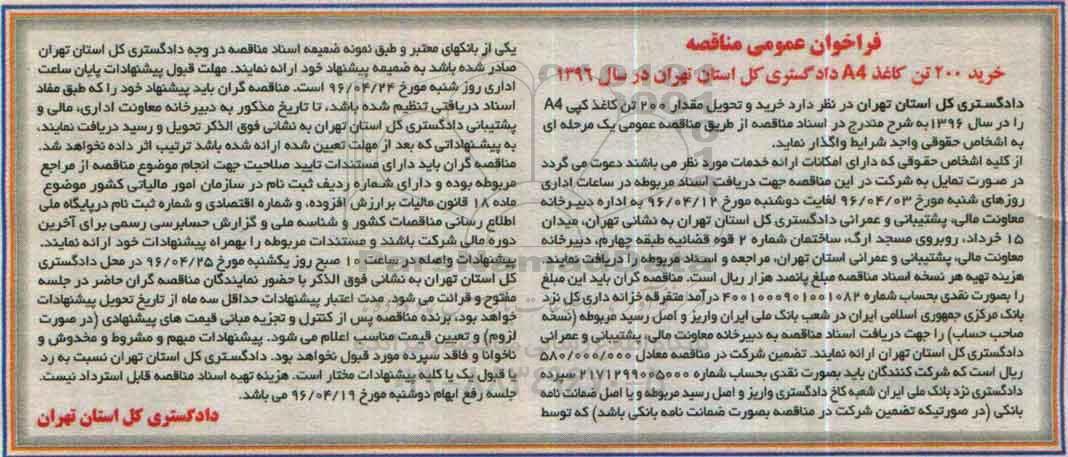 فراخوان عمومی مناقصه
خرید ۲۰۰ تن کاغذ A4 دادگستری کل استان تهران در سال ۱۳۹۶
دادگستری کل استان تهران در نظر دارد خرید و تحویل مقدار ۲۰۰ تن کاغذ کپی A4
را در سال ۱۳۹۶به شرح مندرج در اسناد مناقصه از طریق مناقصه عمومی یک مرحله ای
به اشخاص حقوقی واجد شرایط واگذار نماید.
از کلیه اشخاص حقوقی که دارای امکانات ارائه خدمات مورد نظر می باشند دعوت می گردد
در صورت تمایل به شرکت در این مناقصه جهت دریافت اسناد مربوطه در ساعات اداری
روزهای شنبه مورخ ۹۶/۰۴/۰۳ لغایت دوشنبه مورخ ۹۶/۰۴/۱۲ به اداره دبیرخانه
معاونت مالی، پشتیبانی و عمرانی دادگستری کل استان تهران به نشانی تهران، میدان
۱۵ خرداد، روبروی مسجد ارگ، ساختمان شماره ۲ قوه قضائیه طبقه چهارم، دبیرخانه
معاونت مالی، پشتیبانی و عمرانی استان تهران، مراجعه و اسناد مربوطه را دریافت نمایند.
هزینه تهیه هر نسخه اسناد مناقصه مبلغ پانصد هزار ریال است. مناقصه گران باید این مبلغ
را بصورت نقدی بحساب شماره ۴۰۰۱۰۰۰۹۰۱۰۰۱۰۸۲ درآمد متفرقه خزانه داری کل نزد
بانک مرکزی جمهوری اسلامی ایران در شعب بانک ملی ایران واریز و اصل رسید مربوطه (نسخه
صاحب حساب) را جهت دریافت اسناد مناقصه به دبیرخانه معاونت مالی، پشتیبانی و عمرانی
دادگستری کل استان تهران ارائه نمایند. تضمین شرکت در مناقصه معادل ۵۸۰/۰۰۰/۰۰۰
ریال است که شرکت کنندگان باید بصورت نقدی بحساب شماره ۲۱۷۱۲۹۹۰۰۵۰۰۰ سپرده
دادگستری نزد بانک ملی ایران شعبه کاخ دادگستری واریز و اصل رسید مربوطه و یا اصل ضمانت نامه
بانکی (در صورتیکه تضمین شرکت در مناقصه بصورت ضمانت نامه بانکی باشد) که توسط
یکی از بانکهای معتبر و طبق نمونه ضمیمه اسناد مناقصه در وجه دادگستری کل استان تهران
صادر شده باشد به ضمیمه پیشنهاد خود ارائه نمایند. مهلت قبول پیشنهادات پایان ساعت
اداری روز شنبه مورخ ۹۶/۰۴/۲۴ است. مناقصه گران باید پیشنهاد خود را که طبق مفاد
اسناد دریافتی تنظیم شده باشد، تا تاریخ مذکور به دبیرخانه معاونت اداری، مالی و
پشتیبانی دادگستری کل استان تهران به نشانی فوق الذکر تحویل و رسید دریافت نمایند،
به پیشنهاداتی که بعد از مهلت تعیین شده ارائه شده باشد ترتیب اثر داده نخواهد شد.
مناقصه گران باید دارای مستندات تایید صلاحیت جهت انجام موضوع مناقصه از مراجع
مربوطه بوده و دارای شماره ردیف ثبت نام در سازمان امور مالیاتی کشور موضوع
ماده ۱۸ قانون مالیات برارزش افزوده، و شماره اقتصادی و شماره ثبت نام درپایگاه ملی
اطلاع رسانی مناقصات کشور و شناسه ملی و گزارش حسابرسی رسمی برای آخرین
دوره مالی شرکت باشند و مستندات مربوطه را بهمراه پیشنهادات خود ارائه نمایند.
پیشنهادات واصله در ساعت ۱۰ صبح روز یکشنبه مورخ ۹۶/۰۴/۲۵ در محل دادگستری
کل استان تهران به نشانی فوق الذکر با حضور نمایندگان مناقصه گران حاضر در جلسه
مفتوح و قرائت می شود. مدت اعتبار پیشنهادات حداقل سه ماه از تاریخ تحویل پیشنهادات
خواهد بود، برنده مناقصه پس از کنترل و تجزیه مبانی قیمت های پیشنهادی (در صورت
لزوم) و تعیین قیمت مناسب اعلام می شود. پیشنهادات مبهم و مشروط و مخدوش و
ناخوانا و فاقد سپرده مورد قبول نخواهد بود. دادگستری کل استان تهران نسبت به رد
یا قبول یک یا کلیه پیشنهادات مختار است. هزینه تهیه اسناد مناقصه قابل استرداد نیست.
جلسه رفع ابهام دوشنبه مورخ ۹۶/۰۴/۱۹ می باشد.
دادگستری کل استان تهران